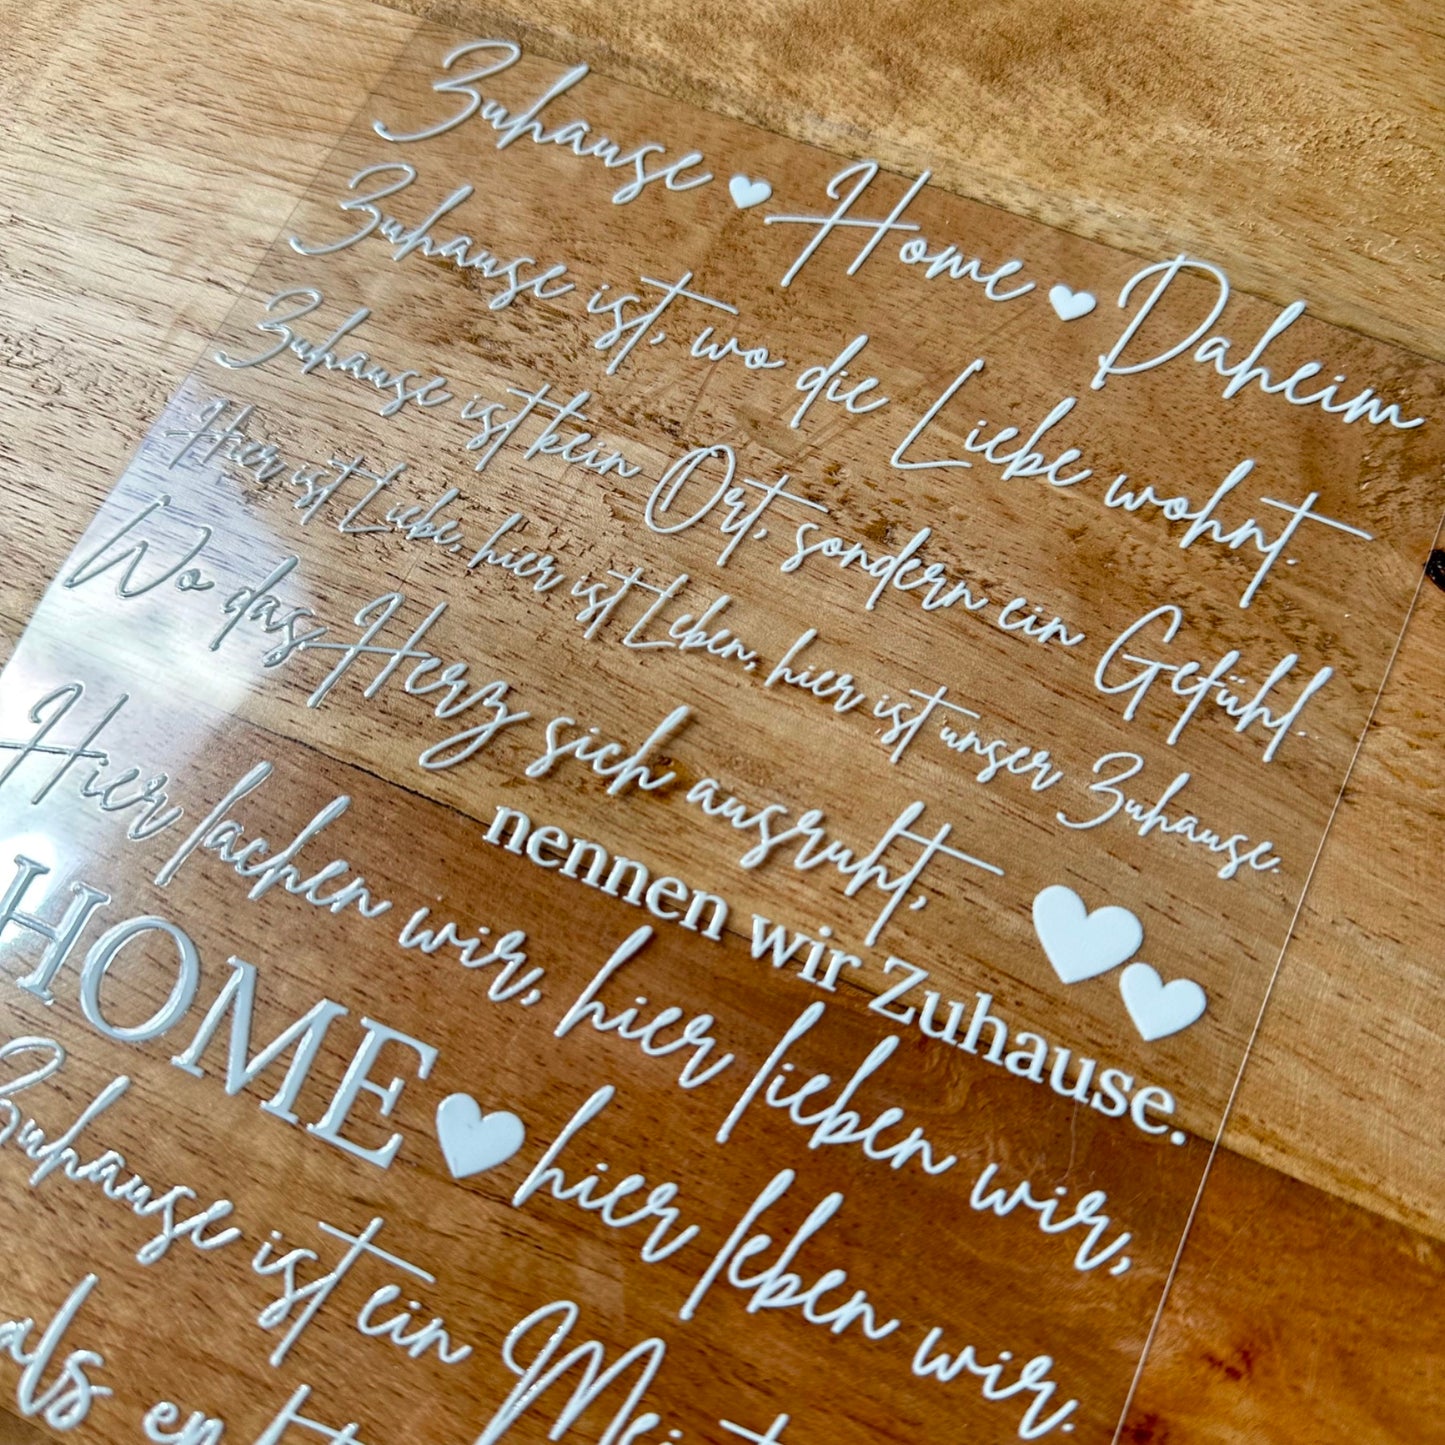 Zuhause ♥ Home ♥ Daheim
Zuhause ist, wo die Liebe wohnt.
Zuhause ist kein Ort, sondern ein Gefühl.
Hier ist Liebe, hier ist Leben, hier ist unser Zuhause.
Wo das Herz sich ausruht,
nennen wir Zuhause.
Hier lachen wir, hier lieben wir,
HOME ♥ hier leben wir.
Zuhause ist ein
als